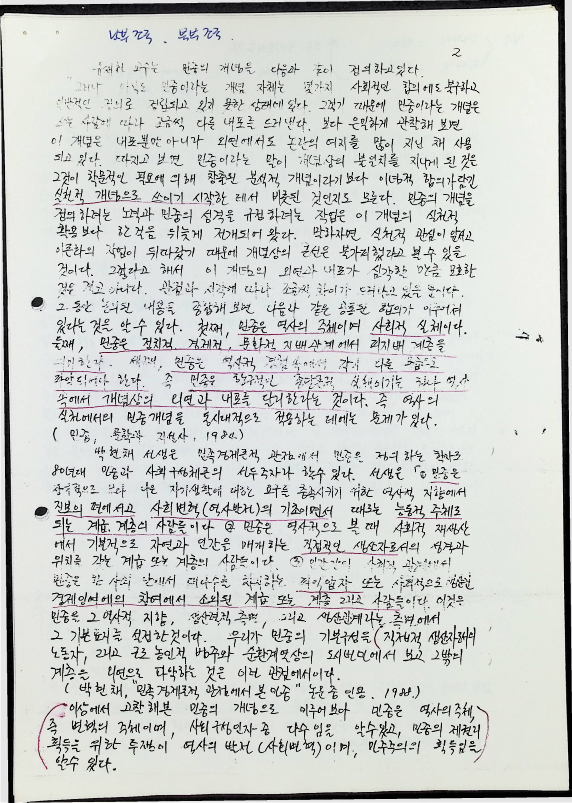 남부 조국 . 북부 조국.
2
유재천 교수는 민중의 개념을 다음과 같이 정의하고 있다.
"그러나 아직도 민중이라는 개념 자체는 몇가지 사회적인 합의에도 불구하고
일반적인 정의로 정립되고 있지 못한 상태에 있다. 그렇기 때문에 민중이라는 개념은
쓰는 사람에 따라 조금씩 다른 내포를 드러낸다. 보다 은밀하게 관찰해 보면
이 개념은 내포뿐만 아니라 외연에서도 논란의 여지를 많이 지닌 채 사용
되고 있다. 따지고 보면 민중이라는 말이 개념상의 불일치를 지니게 된 것은
그것이 학문적인 필요에 의해 창출된 분석적 개념이라기보다 이념적 함의가 담긴
실천적 개념으로 쓰이기 시작한 데서 비롯된 것인지도 모른다. 민중의 개념을
정의하려는 노력과 민중의 성격을 규정하려는 작업은 이 개념의 실천적
활용보다 한 걸음 뒤늦게 전개되어 왔다. 말하자면 실천적 관심이 앞서고
이론화의 작업이 뒤따랐기 때문에 개념상의 혼선은 불가피했다고 볼 수 있을
것이다. 그렇다고 해서 이 개념의 외연과 내포가 심각한 만큼 모호한
것은 결코 아니다. 관점과 시각에 따라 조금씩 차이가 드러나고 있을 뿐이다.
그 동안 논의된 내용을 종합해 보면 다음과 같은 공통된 합의가 이루어져
있다는 것을 알 수 있다. 첫째, 민중은 역사의 주체이며 사회적 실체이다.
둘째, 민중은 정치적, 경제적, 문화적 지배관계에서 피지배 계층을
의미한다. 셋째, 민중은 역사적 경험 속에서 각기 다른 모습으로
파악되어야 한다. 즉 민중은 항구적인 실체이기는 하나 역사
속에서 개념상의 외연과 내포를 달리한다는 것이다. 즉 역사의
실천에서의 민중개념을 동시대적으로 적용하는 데에는 문제가 있다.
( 민중, 1984.)
박현채 선생은 민족경제론적 관점에서 민중을 정의하는 학자로
80년대 민중과 사회구성체론의 선두주자라 할 수 있다. 선생은 "① 민중은
보다 나은 자기생활에 대한 요구를 충족시키기 위한 역사적 지향에서
진보의 편에서고 사회변혁(역사발전)의 기초이면서 때로는 능동적 주체로
되는 계급, 계층의 사람들이다 ② 민중은 역사적으로 볼 때 사회적 재생산
에서 기본적으로 자연과 인간을 매개하는 직접적인 생산자로서의 성격과
위치를 갖는 계급 또는 계층의 사람들이다 ③ 인간간의 사회적 관계에서
민중은 한 사회 안에서 대다수를 차지하는 직접생산자 또는 사회적으로 생산된
경제잉여에의 참여에서 소외된 계급 또는 계층 그리고 사람들이다. 이것은
민중을 그 역사적 지향, 생산력적 측면, 그리고 생산관계라는 측면에서
그 기본표지를 설정한 것이다. 우리가 민중의 기본구성을 (직접적 생산자)에서의
노동자, 그리고 근로농민적 범주와 순환계열상의 도시빈민에서 보고 그밖의
계층을 외연으로 파악하는 것은 이런 관점에서이다.
( 박현채, "민족경제론적 관점에서 본 민중" 논문 중 인용. 1988.)
이상에서 고찰해본 민중의 개념으로 미루어보아 민중은 역사의 주체,
즉 변혁의 주체이며, 사회구성인자 중 다수임을 알 수 있고, 민중의 제권리
획득을 위한 투쟁이 역사의 발전(사회변혁)이며, 민주주의의 획득임을
알 수 있다.